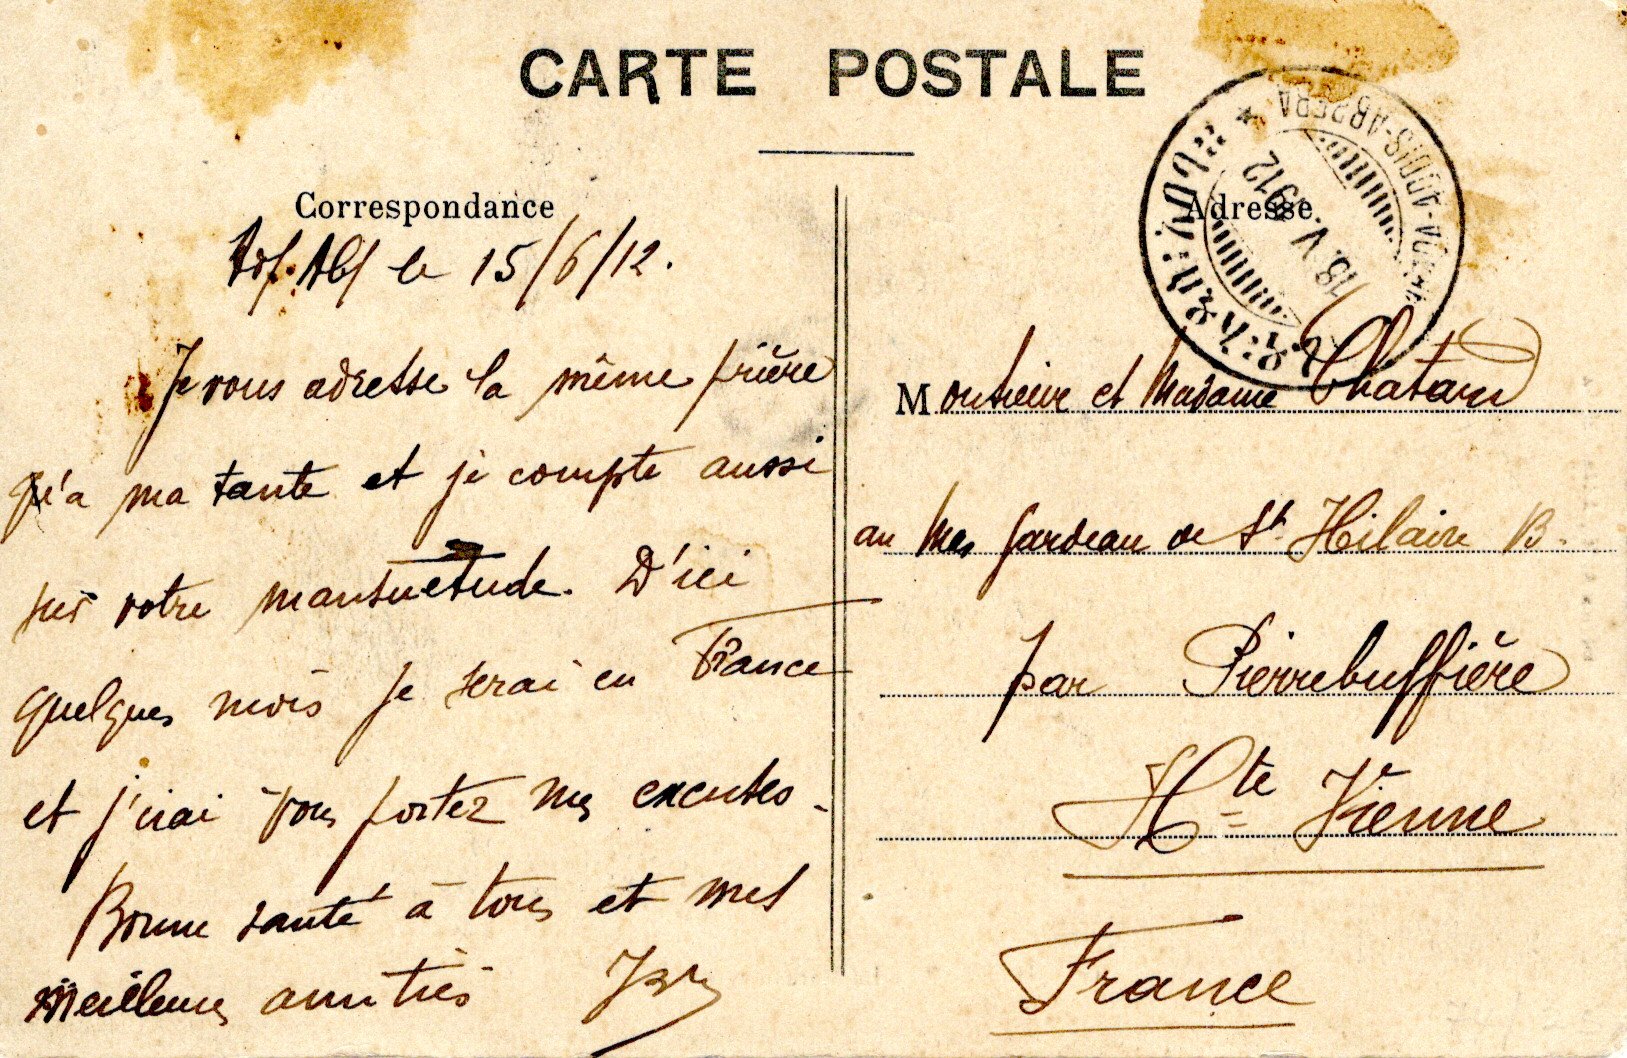 CARTE POSTALE
Correspondance
le 15/6/12.
Je vous adresse la même prière
qu'a ma tante et je compte aussi
sur votre mansuetude. D'ici
quelques mois je serai en France
et j'irai vous porter mes excuses.
Bonne santé à tous et mes
meilleures amitiés
Adresse
Monsieur et Madame Chatard
au Mas Gardeau de St Hilaire B.
par Pierrebuffière
Hte Vienne
France
ADDIS-ABEBA
18.V.1912